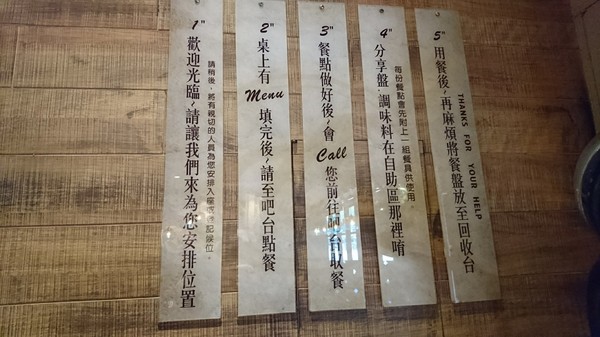 1"
歡迎光臨~請讓我們來為您安排位置
請稍後,將有親切的人員為您安排入座或登記候位。
2"
桌上有 Menu 填完後~請至吧台點餐
3"
餐點做好後~會 Call 您前往吧台取餐
4"
分享盤、調味料在自助區那裡唷
每份餐點會先附上一組餐具供使用。
5"
用餐後~再麻煩將餐盤放至回收台
THANKS FOR YOUR HELP